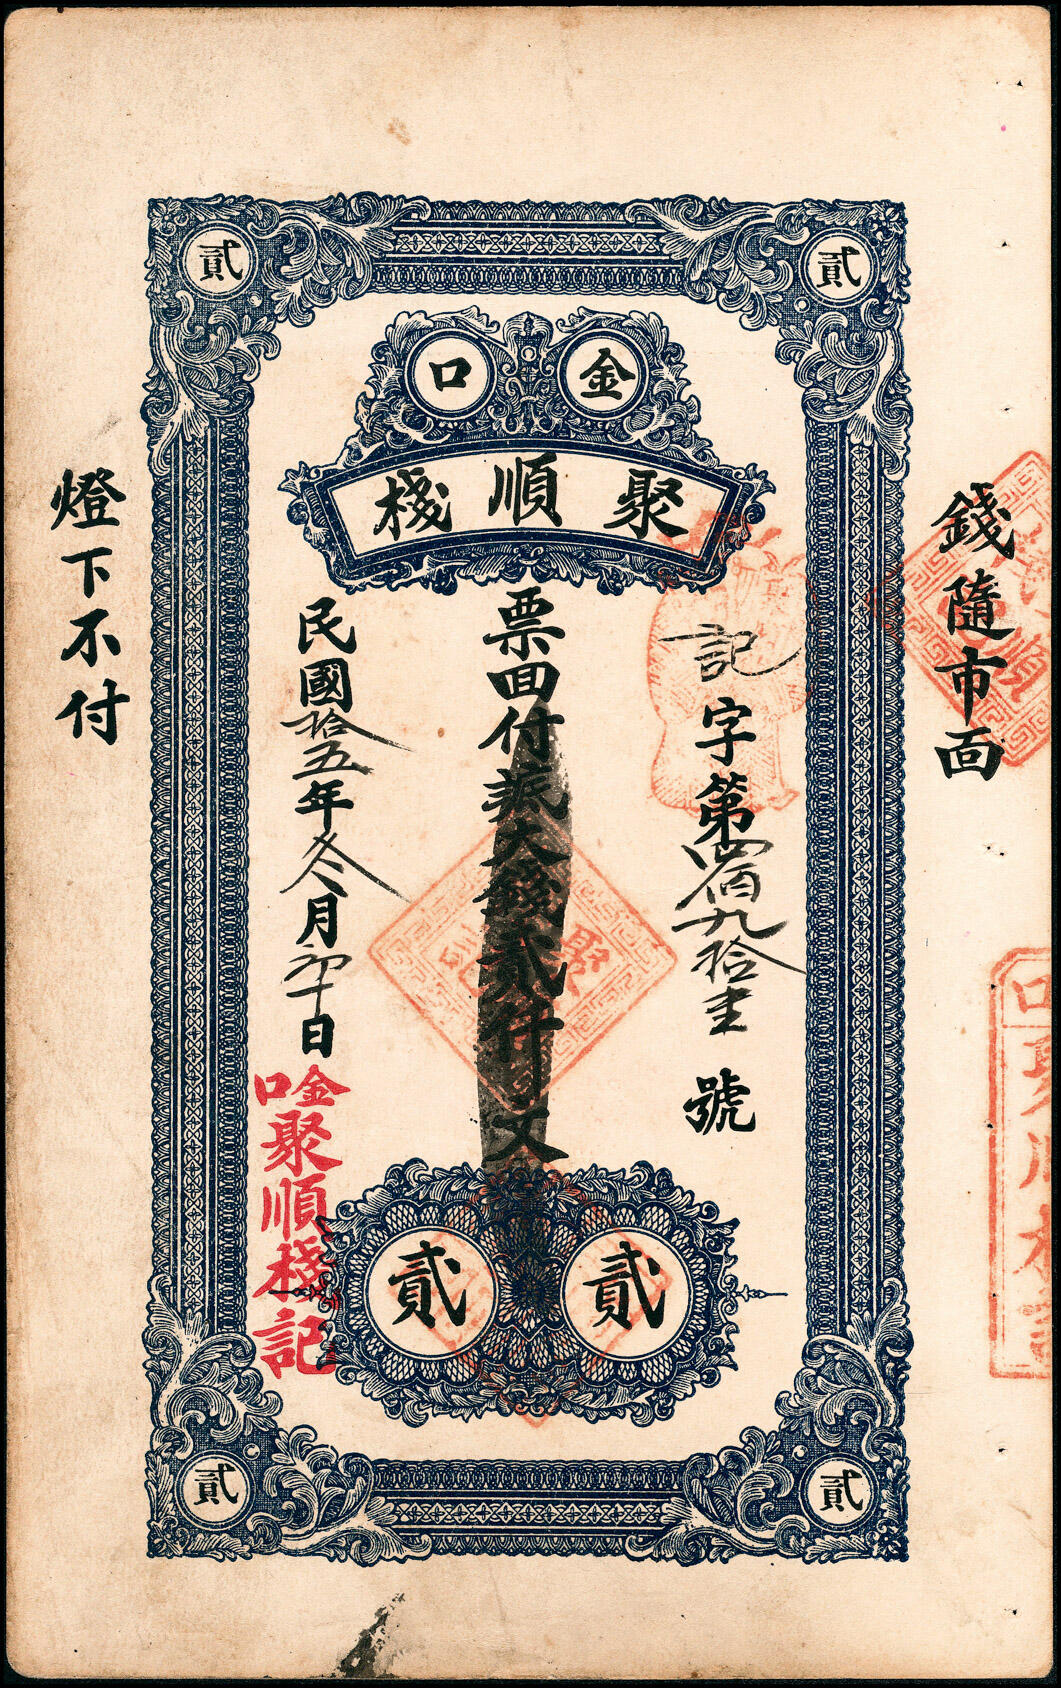 貳
貳
金口
聚順棧
錢隨市面
記字第四佰九拾壹號
票面付蔴大錢貳仟文
民國拾五年冬月初十日
金口
聚順棧記
燈下不付
貳
貳
貳
貳